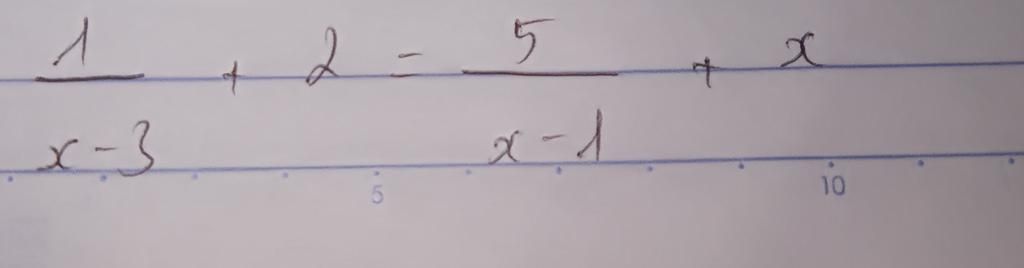 1/(x-3) + 2 = 5/(x-1) + x
5 10